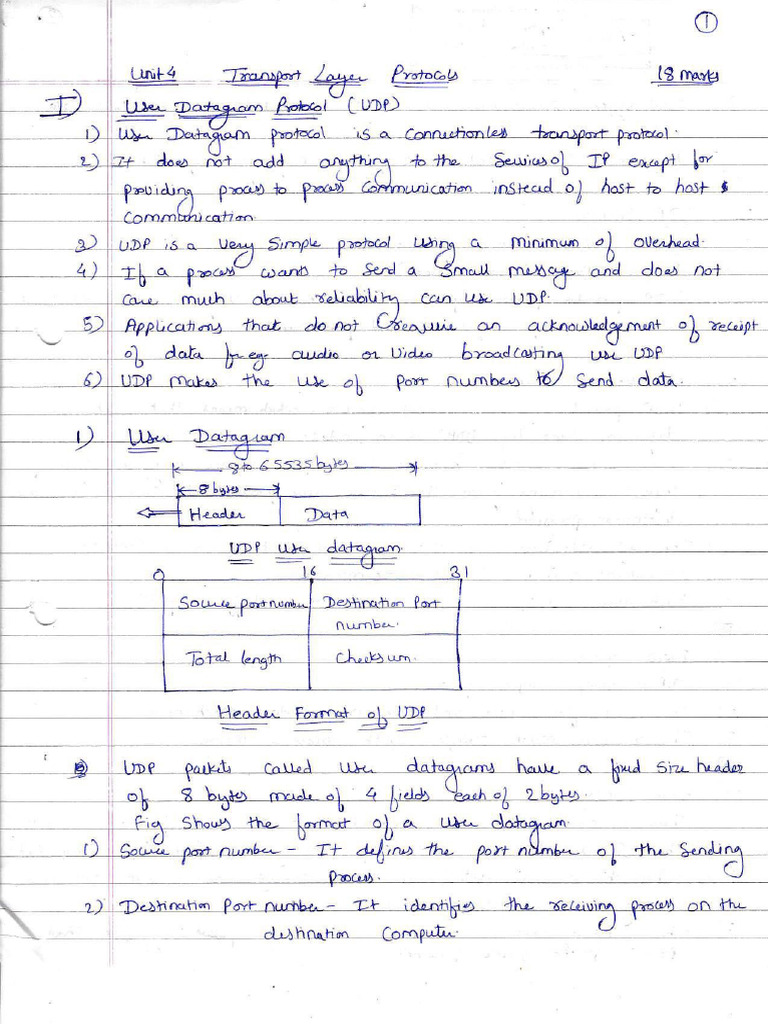 1
Unit 4 Transport Layer Protocols 18 marks
I) User Datagram Protocol (UDP)
1) User Datagram protocol is a connectionless transport protocol.
2) It does not add anything to the services of IP except for
providing process to process communication instead of host to host
communication.
3) UDP is a very simple protocol using a minimum of overhead.
4) If a process wants to send a small message and does not
care much about reliability can use UDP.
5) Applications that do not require an acknowledgement of receipt
of data for eg. audio or video broadcasting use UDP
6) UDP makes the use of port numbers to send data.
1) User Datagram
8 to 65535 bytes
8 bytes
Header Data
UDP user datagram.
0 16 31
Source port number Destination Port
number.
Total length Checksum.
Header Format of UDP
UDP packets called user datagrams have a fixed size header
of 8 bytes made of 4 fields each of 2 bytes.
Fig shows the format of a user datagram.
1) Source port number - It defines the port number of the sending
process.
2) Destination Port number - It identifies the receiving process on the
destination computer.